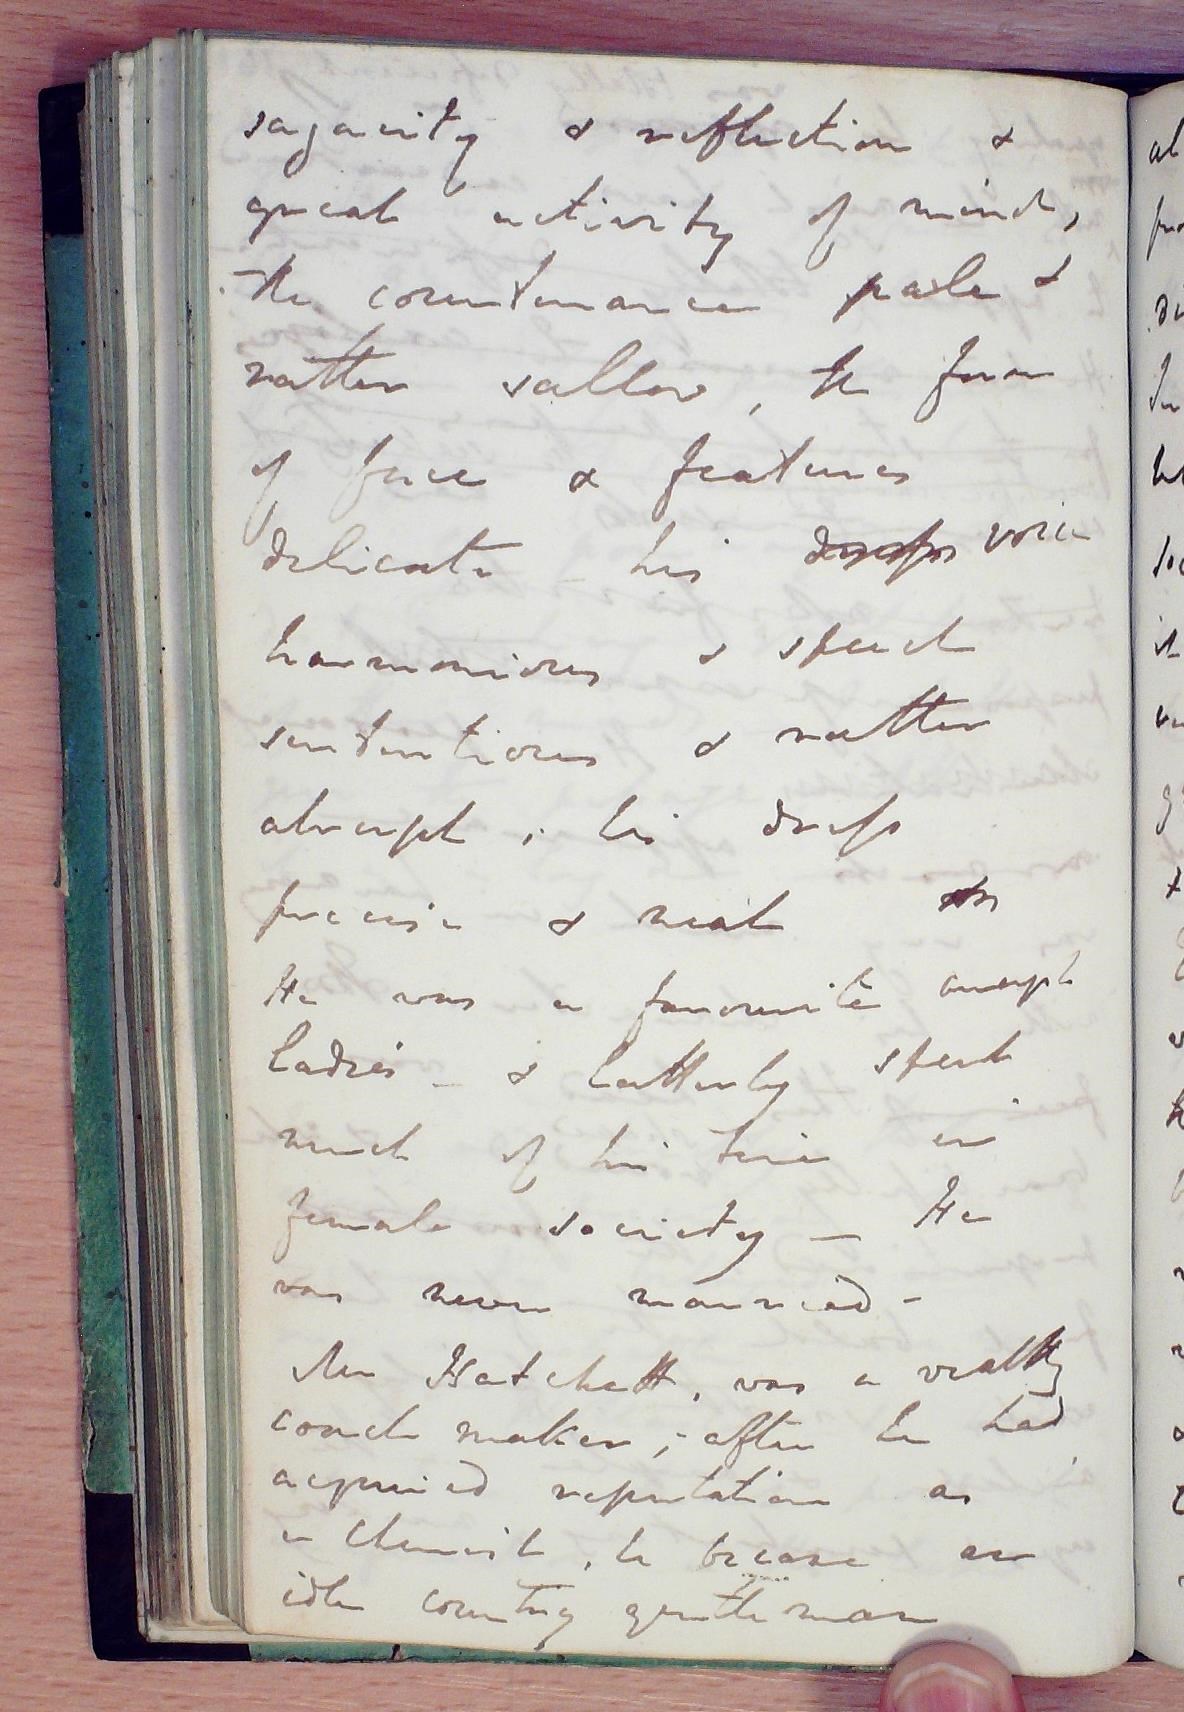 sagacity & reflection &
great activity of mind,
The countenance pale &
rather sallow, the form
of face & features
delicate – his voice
harmonious & speech
sententious & rather
abrupt; his dress
precise & neat
He was a favourite amongst
ladies – & latterly spent
much of his time in
female society – He
was never married –
Mr Hatchett, was a wealthy
coach maker; – after he had
acquired reputation as
a Chemist, he became an
idle country gentleman
al